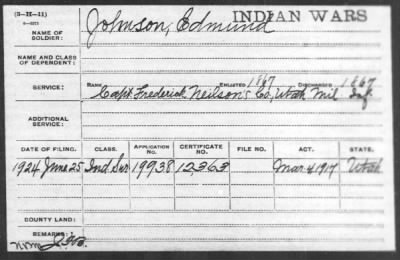 (3-II-41)
INDIAN WARS
NAME OF SOLDIER: Johnson, Edmund
NAME AND CLASS OF DEPENDENT:
SERVICE: RANK ENLISTED 1867 DISCHARGED 1867
Capt. Frederick Neilson's Co, Utah Mil Inf.
ADDITIONAL SERVICE:
DATE OF FILING. CLASS. APPLICATION NO. CERTIFICATE NO. FILE NO. ACT. STATE.
1924 June 25 Ind. Sur 19938 12,363 Mar 4 1917 Utah
COUNTY LAND:
REMARKS: